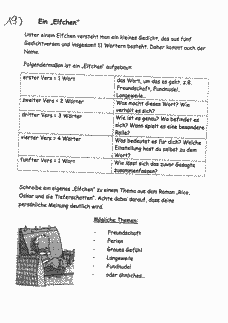 19)
Ein „Elfchen"
Unter einem Elfchen versteht man ein kleines Gedicht, das aus fünf
Gedichtversen und insgesamt 11 Wörtern besteht. Daher kommt auch der
Name.
Folgendermaßen ist ein „Elfchen" aufgebaut:
erster Vers = 1 Wort
das Wort, um das es geht, z.B.
Freundschaft, Fundnudel,
Langeweile...
zweiter Vers = 2 Wörter
Was macht dieses Wort? Wie
verhält es sich?
dritter Vers = 3 Wörter
Wie ist es genau? Wo befindet es
sich? Wann spielt es eine besondere
Rolle?
vierter Vers = 4 Wörter
Was bedeutet es für dich? Welche
Einstellung hast du selbst zu dem
Wort?
fünfter Vers = 1 Wort
Wie lässt sich das zuvor Gesagte
zusammenfassen?
Schreibe ein eigenes „Elfchen" zu einem Thema aus dem Roman „Rico,
Oskar und die Tieferschatten". Achte dabei darauf, dass deine
persönliche Meinung deutlich wird.
Mögliche Themen:
- Freundschaft
- Ferien
- Graues Gefühl
- Langeweile
- Fundnudel
- oder ähnliches...